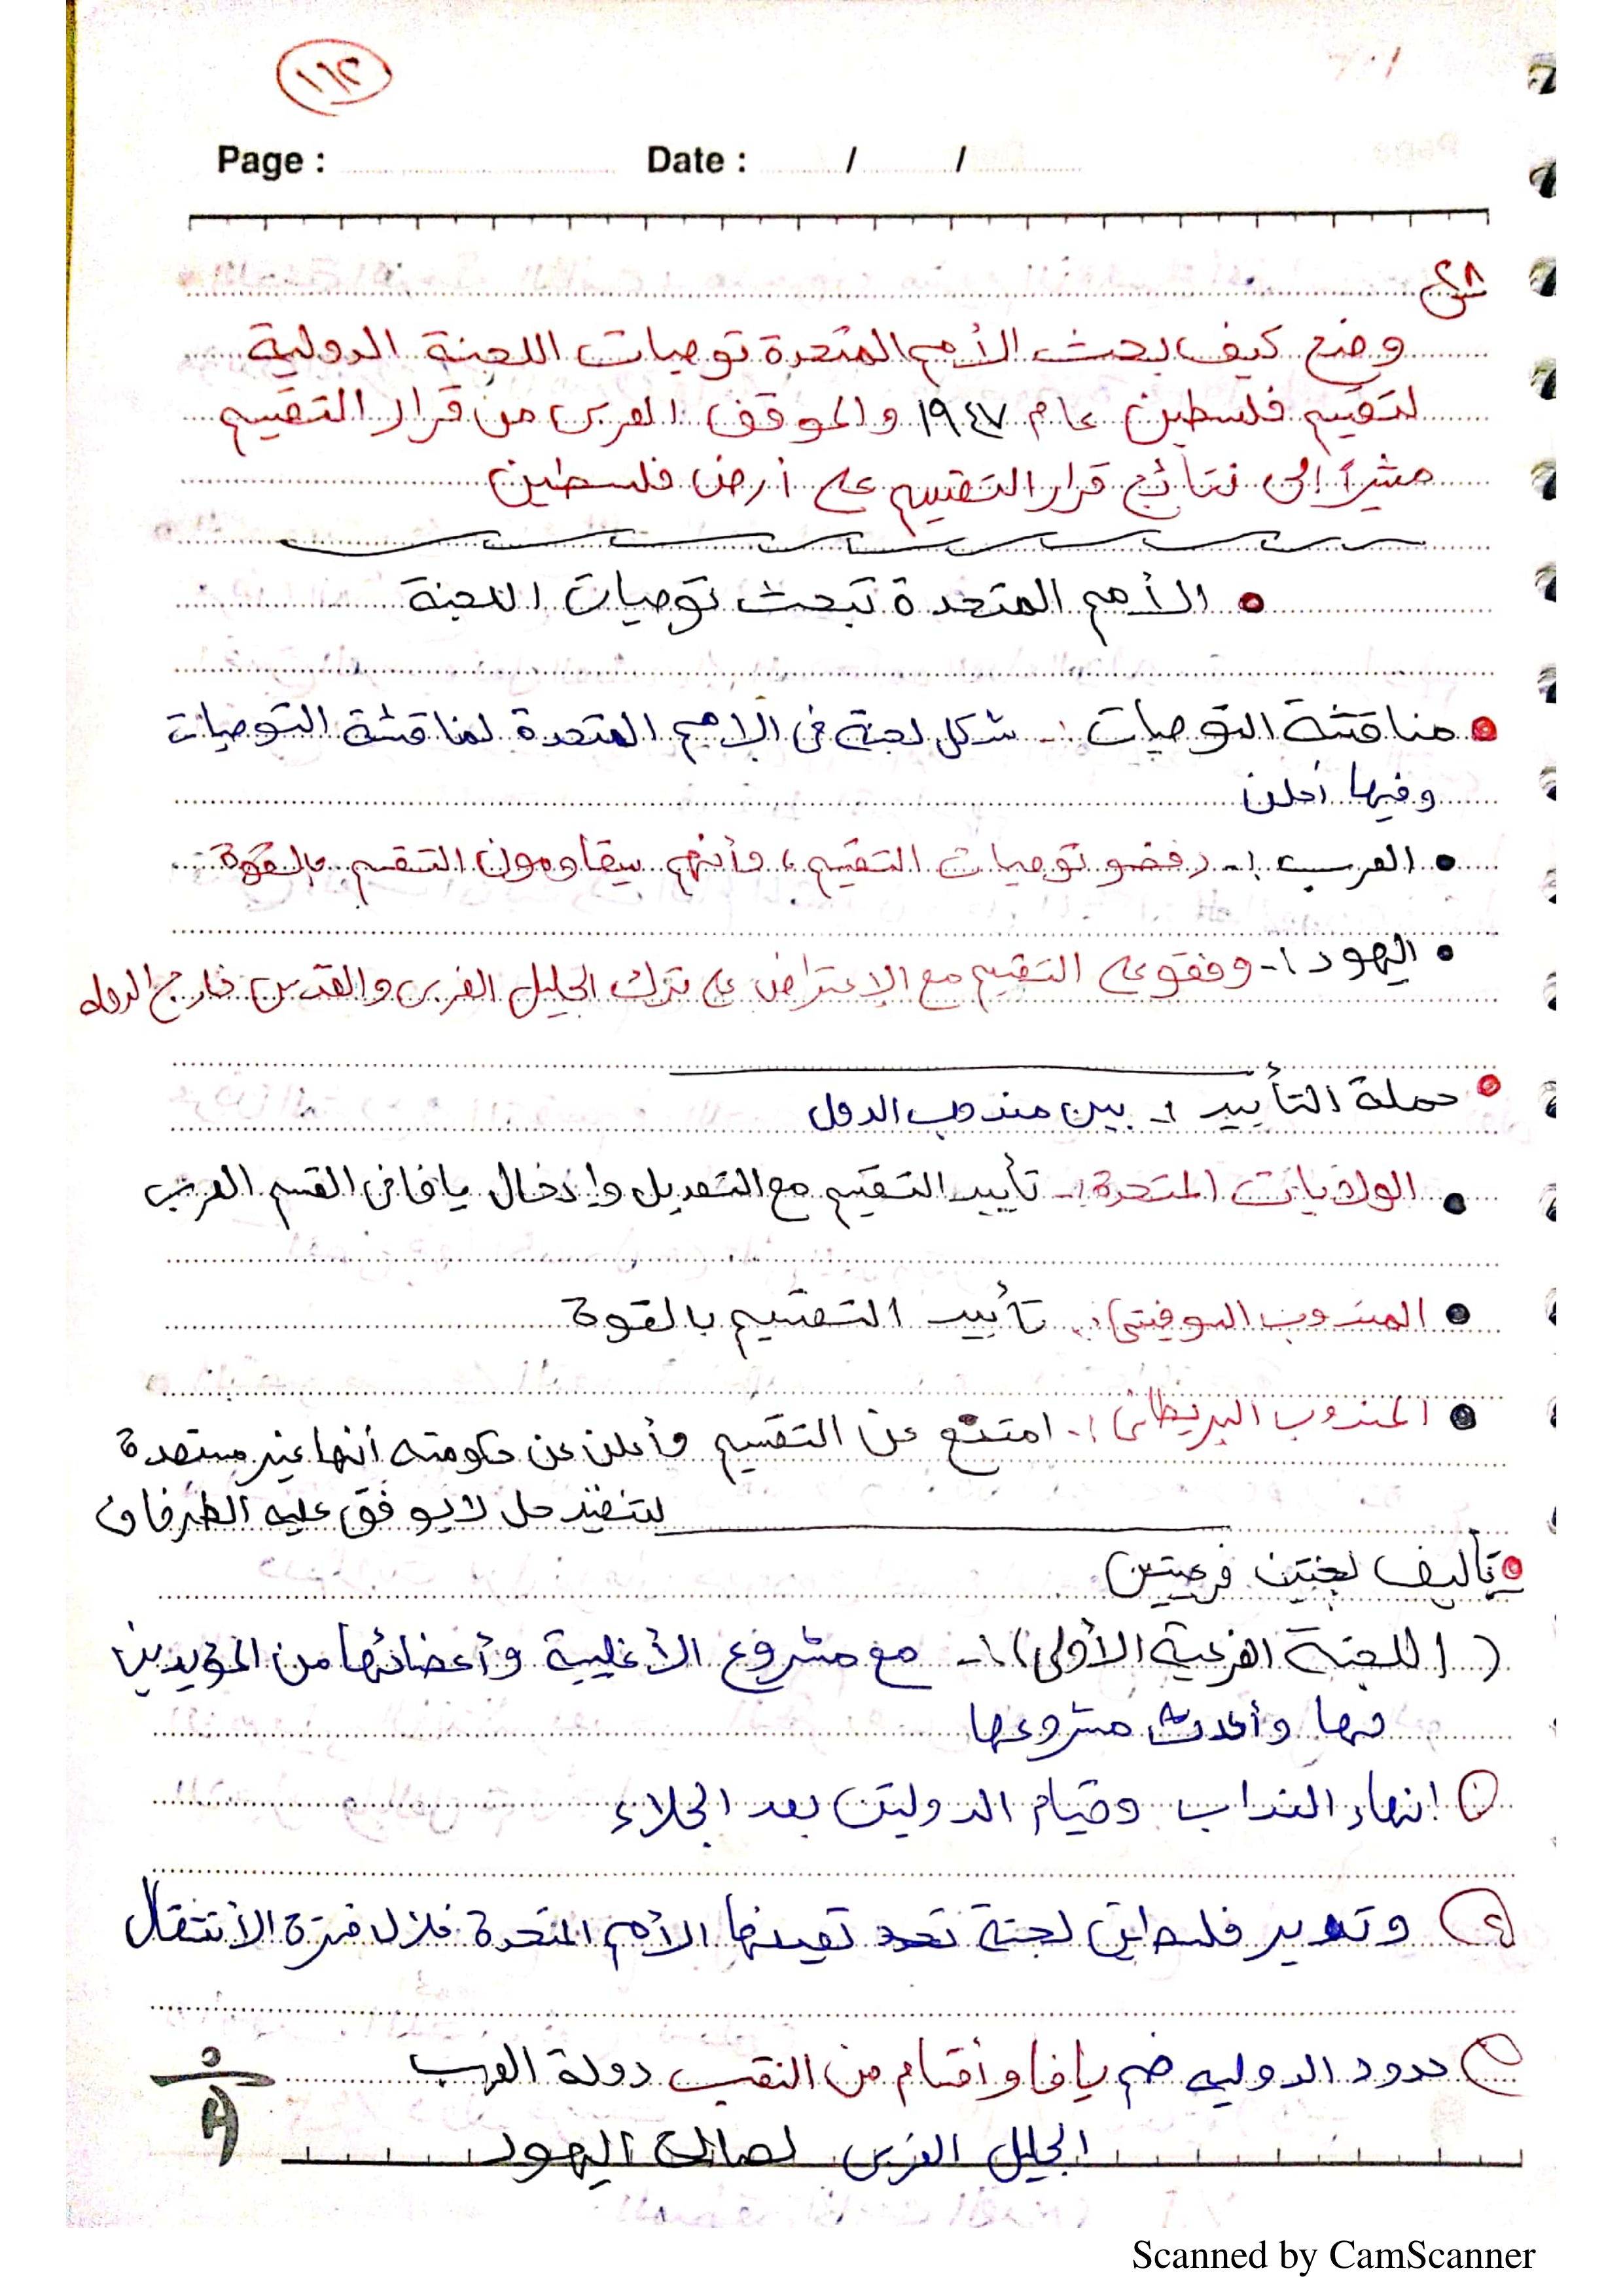 ١٦٢
Page : Date : / /
س٢٨
وضح كيف بحث الأمم المتحدة توصيات اللجنة الدولية
لتقسيم فلسطين عام ١٩٤٧ والموقف العربى من قرار التقسيم
مشيراً إلى نتائج قرار التقسيم على أرض فلسطين
• الأمم المتحدة تبحث توصيات اللجنة
• مناقشة التوصيات :- شكل لجنة فى الامم المتحدة لمناقشة التوصيات
وفيها أعلن
• العرب :- رفضو توصيات التقسيم، وأنهم سيقاومون التقسم بالقوة
• اليهود :- وفقو على التقسيم مع الإعتراض على ترك الجليل الغربى والقدس خارج الدوله
• حملة التأييد :- بين مندوب الدول
• الولايات المتحدة :- تأييد التقسيم مع التعديل وإدخال يافا فى القسم العربى
• المندوب السوفيتى :- تأييد التقسيم بالقوة
• المندوب البريطانى :- امتنع عن التقسيم وأعلن عن حكومته أنها غير مستعدة
لتنفيذ حل لا يوفق عليه الطرفان
• تأليف لجنتين فرعيتين
( اللجنة الفرعية الأولى ) :- مع مشروع الأغلبية وأعضائها من المؤيدين
لها وأعدت مشروعها
١ إنهاء النداب وقيام الدولتين بعد الجلاء
٢ وتدير فلسطين لجنة تعينها الأمم المتحدة خلال فترة الأنتقال
٣ حدود الدوليه ضم يافا وأقسام من النقب دولة العرب
الجليل الغربى لصالح اليهود
Scanned by CamScanner